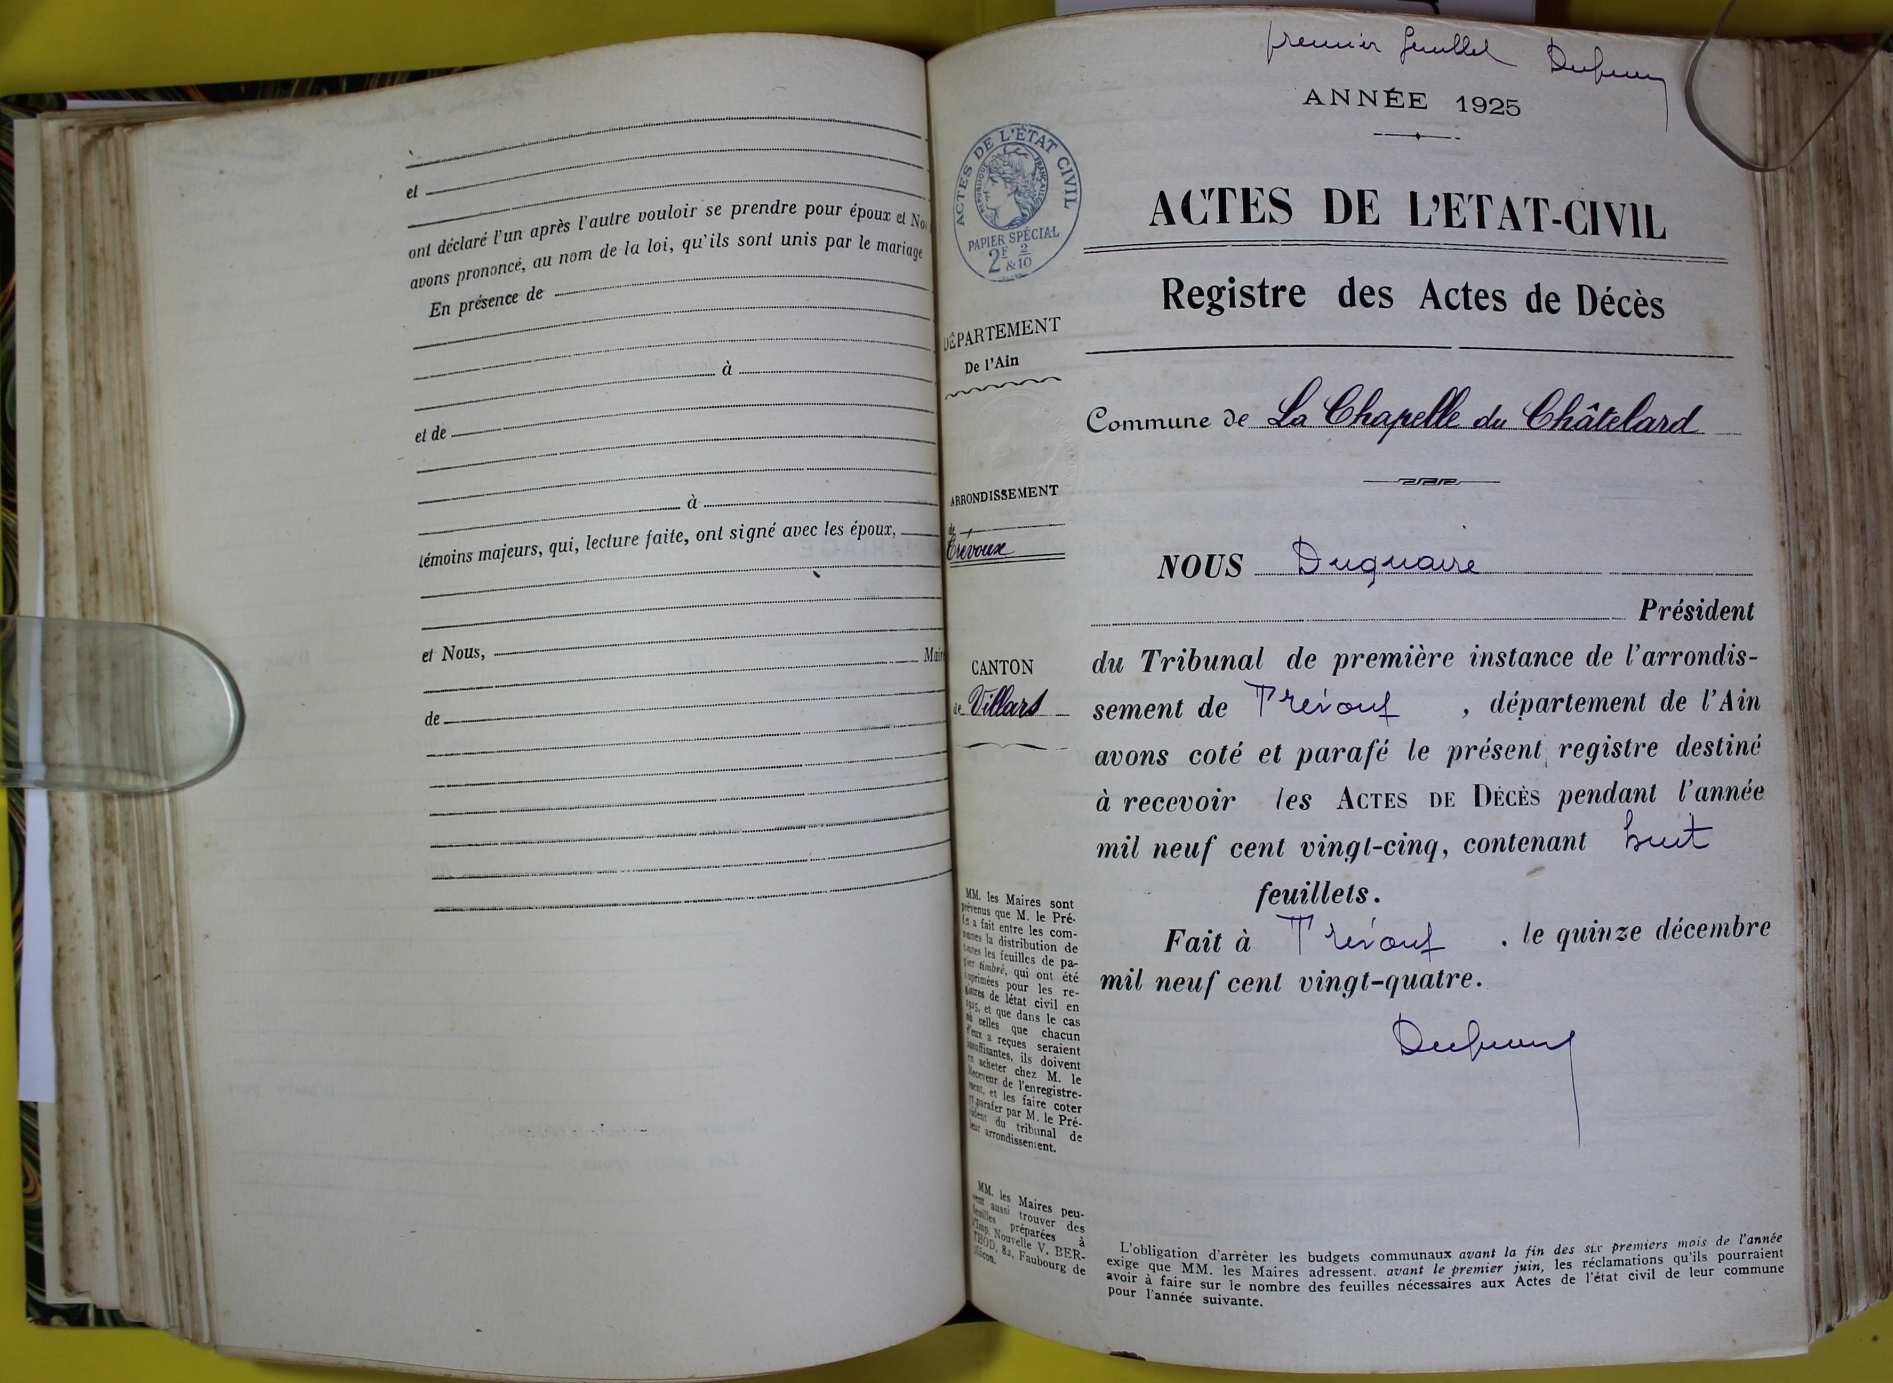 et
ont déclaré l'un après l'autre vouloir se prendre pour époux et No
avons prononcé, au nom de la loi, qu'ils sont unis par le mariage
En présence de
à
et de
à
témoins majeurs, qui, lecture faite, ont signé avec les époux,
et Nous,
Mair
de
premier feuillet
ANNÉE 1925
ACTES DE L'ÉTAT CIVIL
RÉPUBLIQUE FRANÇAISE
PAPIER SPÉCIAL
2F & 2/10
ACTES DE L'ETAT-CIVIL
Registre des Actes de Décès
DÉPARTEMENT
De l'Ain
Commune de La Chapelle du Châtelard
ARRONDISSEMENT
de
Trévoux
CANTON
de Villars
NOUS Duquaire
Président
du Tribunal de première instance de l'arrondis-
sement de Trévoux, département de l'Ain
avons coté et parafé le présent registre destiné
à recevoir les ACTES DE DÉCÈS pendant l'année
mil neuf cent vingt-cinq, contenant huit
feuillets.
Fait à Trévoux, le quinze décembre
mil neuf cent vingt-quatre.
MM. les Maires sont
prévenus que M. le Pré-
fet a fait entre les com-
munes la distribution de
toutes les feuilles de pa-
pier timbré, qui ont été
imprimées pour les re-
gistres de létat civil en
1925, et que dans le cas
où celles que chacun
d'eux a reçues seraient
insuffisantes, ils doivent
en acheter chez M. le
Receveur de l'enregistre-
ment, et les faire coter
et parafer par M. le Pré-
sident du tribunal de
leur arrondissement.
MM. les Maires peu-
vent aussi trouver des
feuilles préparées à
l'Imp. Nouvelle V. BER-
THOD, 82, Faubourg de
Mâcon.
L'obligation d'arrêter les budgets communaux avant la fin des six premiers mois de l'année
exige que MM. les Maires adressent, avant le premier juin, les réclamations qu'ils pourraient
avoir à faire sur le nombre des feuilles nécessaires aux Actes de l'état civil de leur commune
pour l'année suivante.